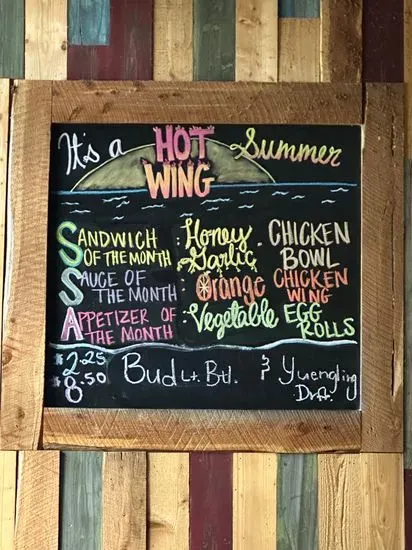 It's a HOT WING Summer
SANDWICH OF THE MONTH : Honey Garlic CHICKEN BOWL
SAUCE OF THE MONTH : Orange CHICKEN WING
APPETIZER OF THE MONTH : Vegetable EGG ROLLS
$2.25 Bud Lt. Btl. & Yuengling Drft.
$8.50